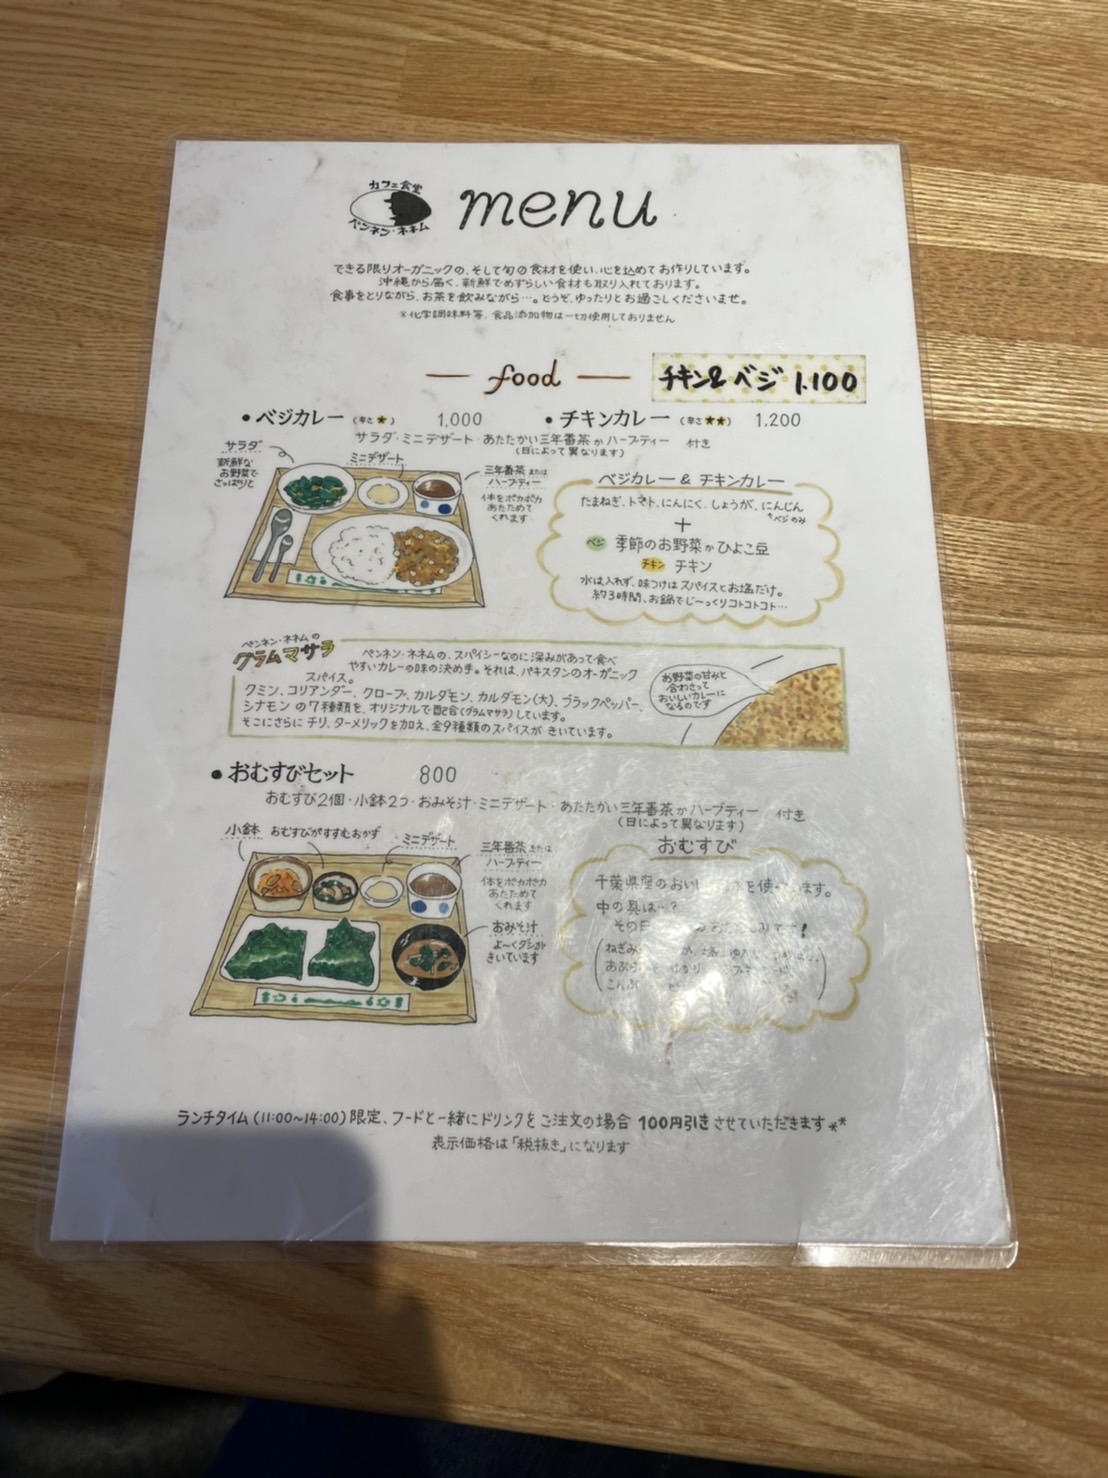 カフェ食堂
ペンネン・ネネム
menu
できる限りオーガニックの、そして旬の食材を使い、心を込めてお作りしています。
沖縄から届く、新鮮でめずらしい食材も取り入れております。
食事をとりながら、お茶を飲みながら…。どうぞ、ゆったりとお過ごしくださいませ。
※化学調味料等、食品添加物は一切使用しておりません
food
チキン&ベジ 1,100
・ベジカレー (辛さ★) 1,000
・チキンカレー (辛さ★★) 1,200
サラダ・ミニデザート・あたたかい三年番茶かハーブティー 付き
(日によって異なります)
サラダ
新鮮な
お野菜で
さっぱりと
ミニデザート
三年番茶 または
ハーブティー
体をポカポカ
あたためて
くれます
ベジカレー & チキンカレー
たまねぎ、トマト、にんにく、しょうが、にんじん
ベジのみ
+
ベジ 季節のお野菜かひよこ豆
チキン チキン
水は入れず、味つけはスパイスとお塩だけ。
約3時間、お鍋でじ〜っくりコトコトコト…
ペンネン・ネネムの
グラムマサラ
ペンネン・ネネムの、スパイシーなのに深みがあって食べ
やすいカレーの味の決め手。それは、パキスタンのオーガニック
スパイス。
クミン、コリアンダー、クローブ、カルダモン、カルダモン(大)、ブラックペッパー、
シナモン の7種類を、オリジナルで配合(グラムマサラ)しています。
そこにさらに チリ、ターメリックを加え、全9種類のスパイスが きいています。
お野菜の甘みと
合わさって
おいしいカレーに
なるのです
・おむすびセット 800
おむすび2個・小鉢2つ・おみそ汁・ミニデザート・あたたかい三年番茶かハーブティー 付き
(日によって異なります)
小鉢 おむすびがすすむおかず
ミニデザート
三年番茶 または
ハーブティー
体をポカポカ
あたためて
くれます
おみそ汁
よ〜くダシが
きいています
おむすび
千葉県産のおいし を使 ます。
中の具は…?
その日
ねぎみ
こんぶ
ランチタイム(11:00〜14:00)限定、フードと一緒にドリンクをご注文の場合 100円引きさせていただきます**
表示価格は「税抜き」になります